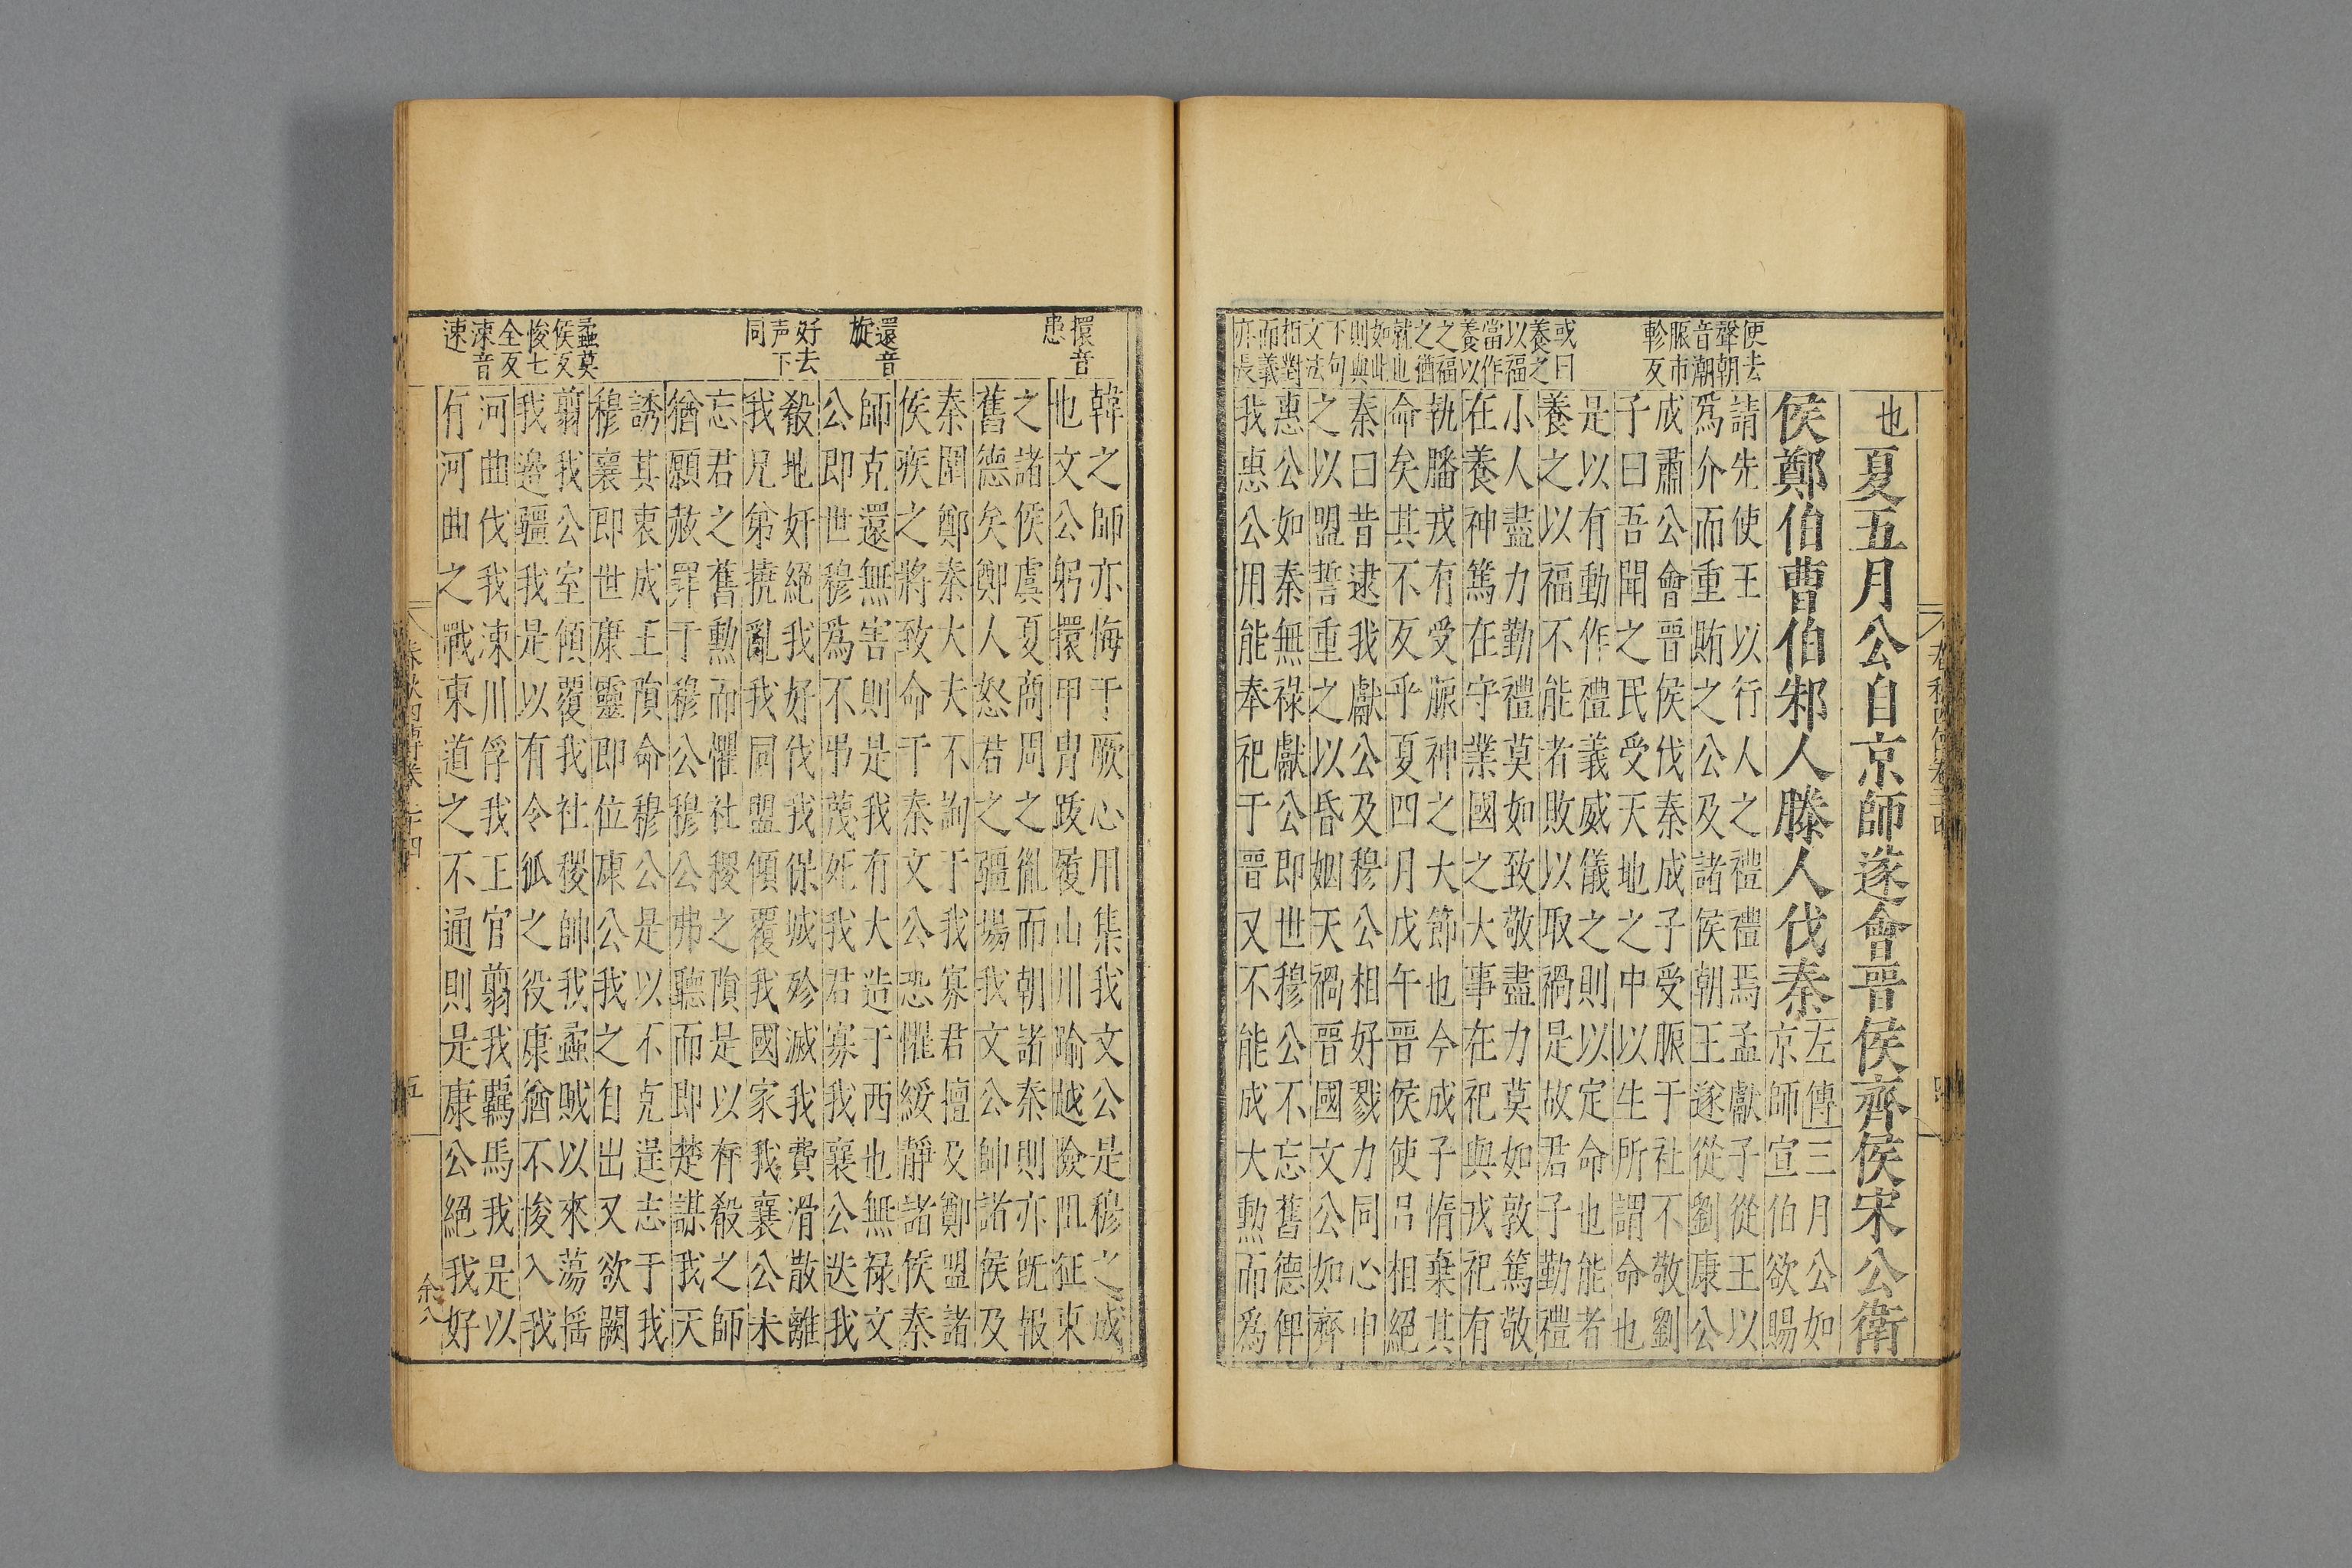 使去
聲朝
音潮
脤市
軫反
或曰
養之
以福
當作
養以
之福
之猶
就也
如此
則與
下句
文法
相對
而義
亦長
也夏五月公自京師遂會晉侯齊侯宋公衛
侯鄭伯曹伯邾人滕人伐秦
左傳三月公如
京師宣伯欲賜
請先使王以行人之禮禮焉孟獻子從王以
爲介而重賄之公及諸侯朝王遂從劉康公
成肅公會晉侯伐秦成子受脤于社不敬劉
子曰吾聞之民受天地之中以生所謂命也
是以有動作禮義威儀之則以定命也能者
養之以福不能者敗以取禍是故君子勤禮
小人盡力勤禮莫如致敬盡力莫如敦篤敬
在養神篤在守業國之大事在祀與戎祀有
執膰戎有受脤神之大節也今成子惰棄其
命矣其不反乎夏四月戊午晉侯使呂相絕
秦曰昔逮我獻公及穆公相好戮力同心申
之以盟誓重之以昏姻天禍晉國文公如齊
惠公如秦無祿獻公即世穆公不忘舊德俾
我惠公用能奉祀于晉又不能成大勳而爲
擐音
患
還音
旋
好去
声下
同
蟊莫
侯反
悛七
全反
涑音
速
韓之師亦悔于厥心用集我文公是穆之成
也文公躬擐甲冑跋履山川踰越險阻征東
之諸侯虞夏商周之胤而朝諸秦則亦旣報
舊德矣鄭人怒君之疆場我文公帥諸侯及
秦圍鄭秦大夫不詢于我寡君擅及鄭盟諸
侯疾之將致命于秦文公恐懼綏靜諸侯秦
師克還無害則是我有大造于西也無祿文
公即世穆爲不弔蔑死我君寡我襄公迭我
殽地奸絕我好伐我保城殄滅我費滑散離
我兄弟撓亂我同盟傾覆我國家我襄公未
忘君之舊勳而懼社稷之隕是以有殽之師
猶願赦罪于穆公穆公弗聽而即楚謀我天
誘其衷成王隕命穆公是以不克逞志于我
穆襄即世康靈即位康公我之自出又欲闕
翦我公室傾覆我社稷帥我蟊賊以來蕩搖
我邊疆我是以有令狐之役康猶不悛入我
河曲伐我涑川俘我王官翦我羈馬我是以
有河曲之戰東道之不通則是康公絕我好
五
余八